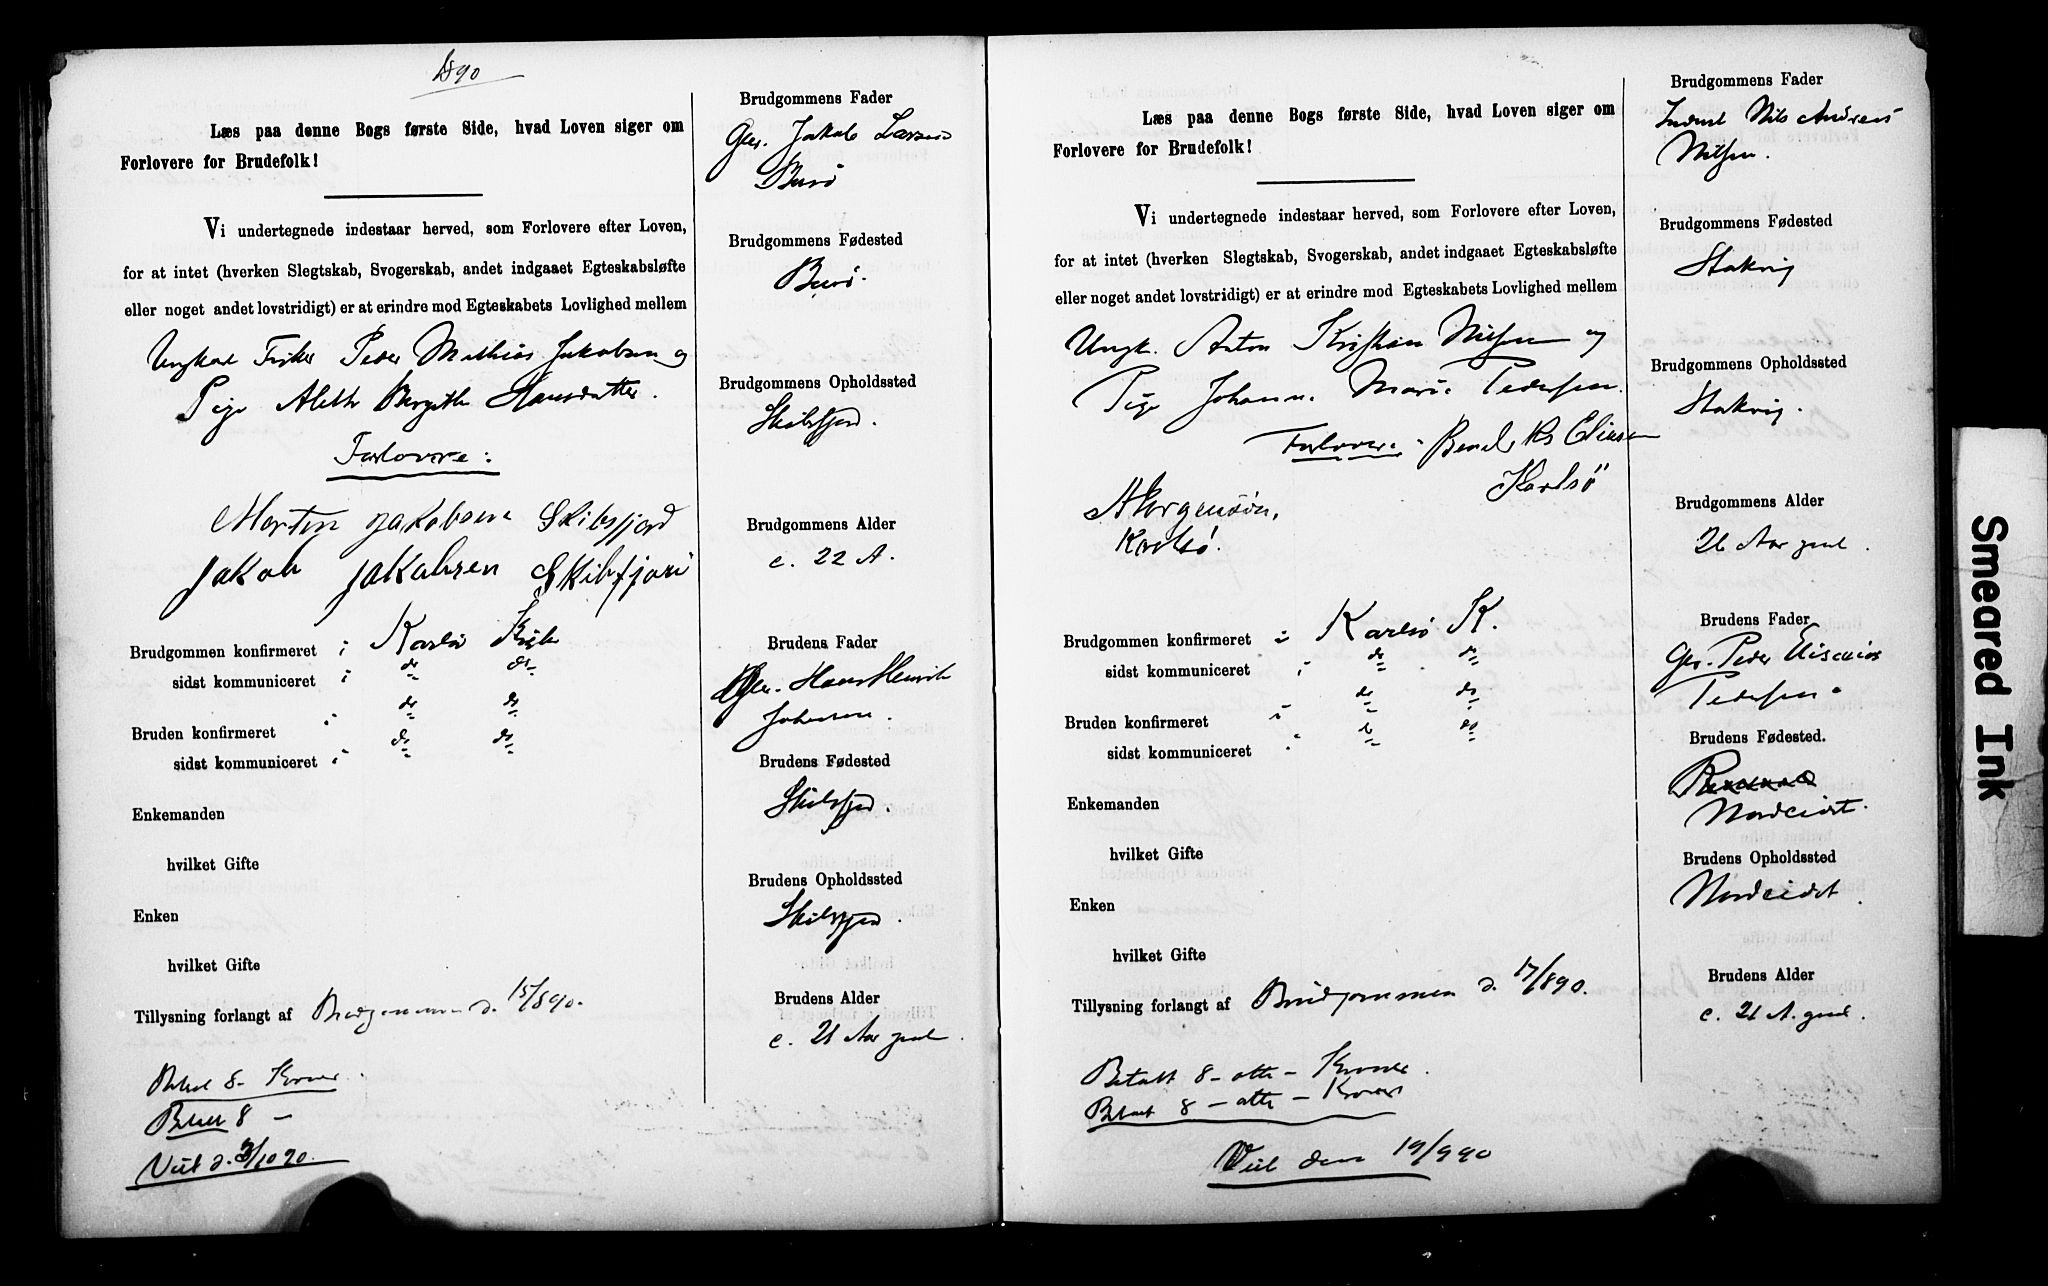 1890
Læs paa denne Bogs første Side, hvad Loven siger om
Forlovere for Brudefolk!
Vi undertegnede indestaar herved, som Forlovere efter Loven,
for at intet (hverken Slegtskab, Svogerskab, andet indgaaet Egteskabsløfte
eller noget andet lovstridigt) er at erindre mod Egteskabets Lovlighed mellem
Ungkarl Fisker Peder Mathias Jakobsen og
Pige Aleth Bergithe Hansdatter.
Forlovere:
Morten Jakobsen Skibsfjord
Jakob Jakobsen Skibsfjord
Brudgommen konfirmeret i Karlsø Kirke
sidst kommuniceret i do do
Bruden konfirmeret i do do
sidst kommuniceret i do do
Enkemanden
hvilket Gifte
Enken
hvilket Gifte
Tillysning forlangt af Brudgommen d. 15/8 90.
Betalt 8 - Kroner.
Betalt 8 -
Viet d. 3/10 90.
Brudgommens Fader
Gbr. Jakob Larsen
Burø
Brudgommens Fødested
Burø.
Brudgommens Opholdssted
Skibsfjord.
Brudgommens Alder
c. 22 A.
Brudens Fader
Gbr. Hans Henrik
Johnsen.
Brudens Fødested
Skibsfjord.
Brudens Opholdssted
Skibsfjord.
Brudens Alder
c. 21 Aar gml.
Læs paa denne Bogs første Side, hvad Loven siger om
Forlovere for Brudefolk!
Vi undertegnede indestaar herved, som Forlovere efter Loven,
for at intet (hverken Slegtskab, Svogerskab, andet indgaaet Egteskabsløfte
eller noget andet lovstridigt) er at erindre mod Egteskabets Lovlighed mellem
Ungk. Anton Kristian Nilsen og
Pige Johanna Marie Pedersen.
Forlovere: Eliasen
Karlsø
Karlsø.
Brudgommen konfirmeret i Karlsø K.
sidst kommuniceret i do do
Bruden konfirmeret i do do
sidst kommuniceret i do do
Enkemanden
hvilket Gifte
Enken
hvilket Gifte
Tillysning forlangt af Brudgommen d. 17/8 90.
Betalt 8 - otte - Kroner.
Betalt 8 - otte - Kroner
Viet den 19/9 90
Brudgommens Fader
Nils Andreas
Nilsen.
Brudgommens Fødested
Stakvig
Brudgommens Opholdssted
Stakvig.
Brudgommens Alder
26 Aar gml.
Brudens Fader
Gbr. Peder Elisæus
Pedersen.
Brudens Fødested.
Nordeidet.
Brudens Opholdssted
Nordeidet.
Brudens Alder
c. 21 A. gml.
Smeared Ink